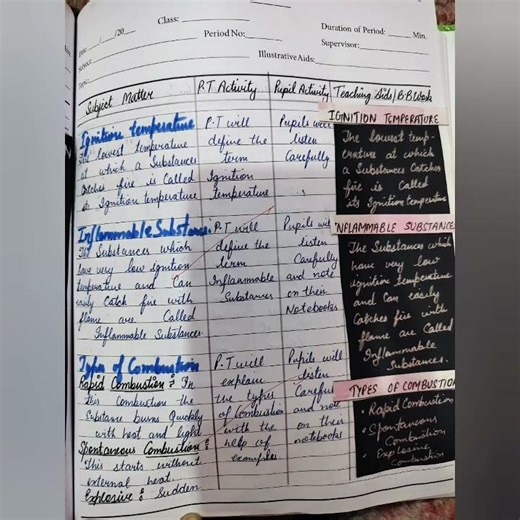 Date: ___/___/20___
Class:
Period No:
Duration of Period: ___ Min.
Subject:
Supervisor:
Topic:
Illustrative Aids:
Subject Matter
P.T Activity
Pupil Activity
Teaching Aids/B.B Work
Ignition Temperature
The lowest temperature
at which a Substances
Catches fire is Called
its Ignition temperature
P.T will
define the
term
Ignition
temperature
Pupils will
listen
Carefully
IGNITION TEMPERATURE
The lowest temp-
erature at which
a Substances Catches
fire is Called
its Ignition temperature
Inflammable Substances
The Substances which
have very low ignition
temperature and Can
easily Catch fire with
flame are Called
Inflammable Substances
P.T will
define the
term
Inflammable
Substances
Pupils will
listen
Carefully
and note
on their
Notebooks
INFLAMMABLE SUBSTANCE
The Substances which
have very low
ignition temperature
and can easily
Catches fire with
flame are Called
Inflammable
Substances.
Types of Combustion
Rapid Combustion :- In
this Combustion the
Substance burns Quickly
with heat and light
Spontaneous Combustion :
This starts without
external heat.
Explosive : Sudden
P.T will
explain
the types
of Combustion
with the
help of
examples
Pupils will
listen
Careful
and note
on their
notebooks
TYPES OF COMBUSTION
• Rapid Combustion
• Spontaneous
Combustion
• Explosive
Combustion